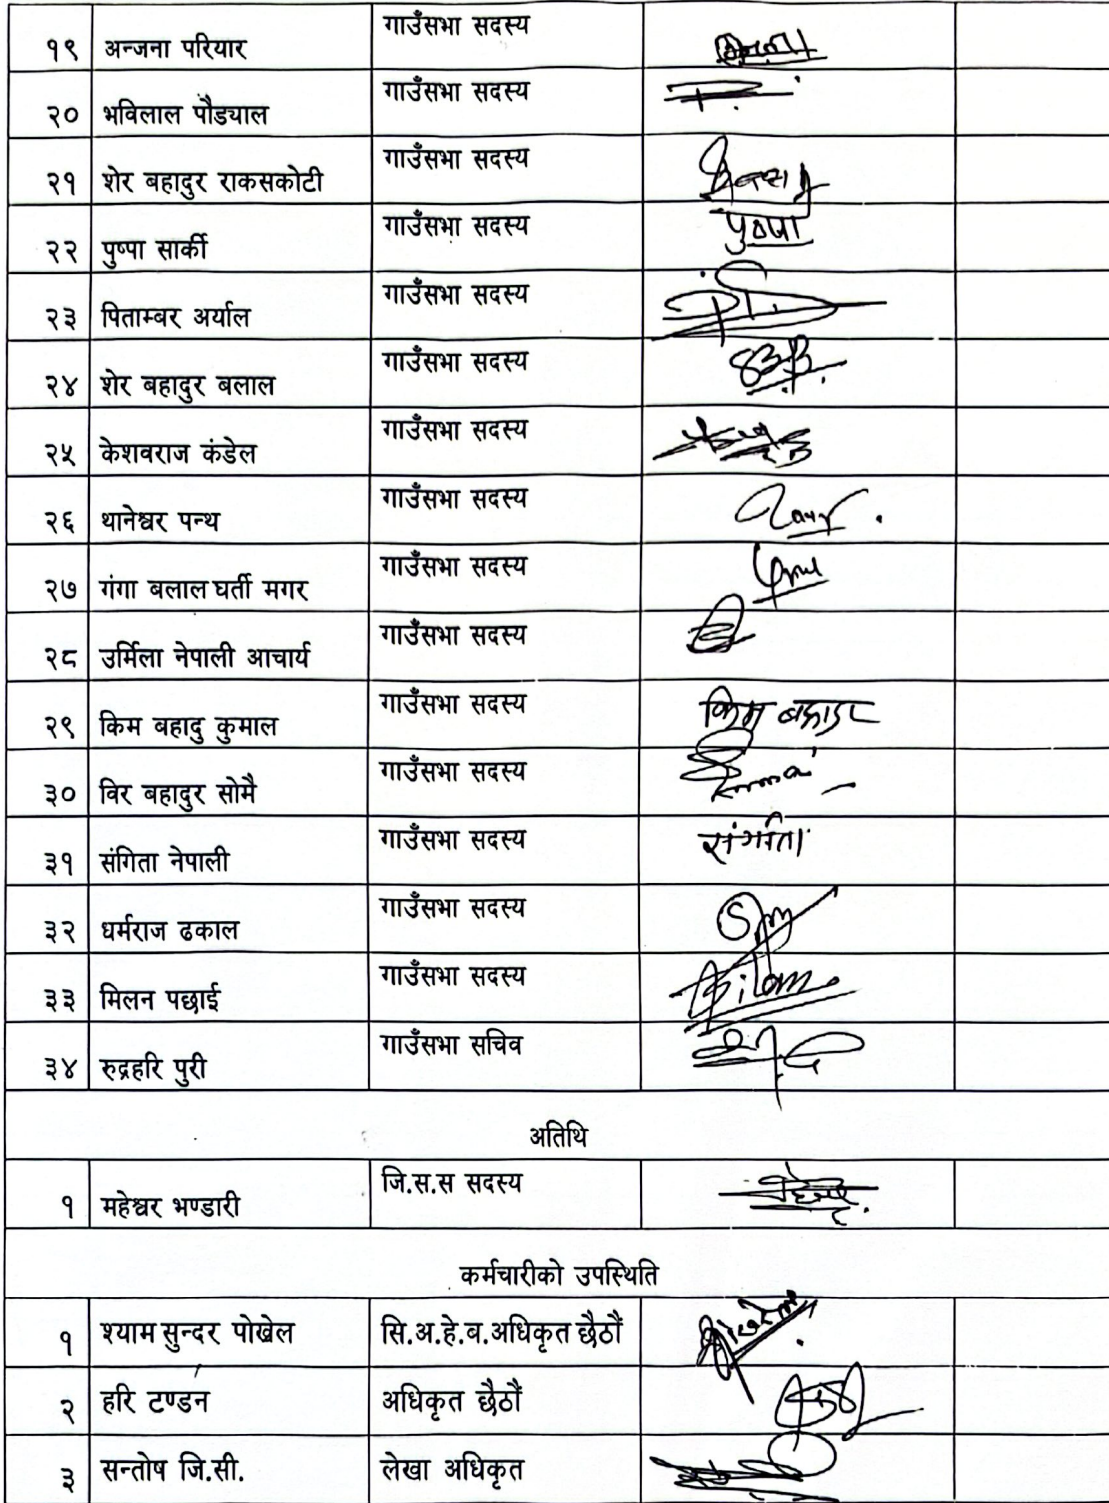 १९ अन्जना परियार गाउँसभा सदस्य
२० भविलाल पौड्याल गाउँसभा सदस्य
२१ शेर बहादुर राकसकोटी गाउँसभा सदस्य
२२ पुष्पा सार्की गाउँसभा सदस्य पुष्पा
२३ पिताम्बर अर्याल गाउँसभा सदस्य
२४ शेर बहादुर बलाल गाउँसभा सदस्य
२५ केशवराज कंडेल गाउँसभा सदस्य
२६ थानेश्वर पन्थ गाउँसभा सदस्य
२७ गंगा बलाल घर्ती मगर गाउँसभा सदस्य
२८ उर्मिला नेपाली आचार्य गाउँसभा सदस्य
२९ किम बहादु कुमाल गाउँसभा सदस्य किम बहादुर
३० विर बहादुर सोमै गाउँसभा सदस्य
३१ संगिता नेपाली गाउँसभा सदस्य संगीता
३२ धर्मराज ढकाल गाउँसभा सदस्य
३३ मिलन पछाई गाउँसभा सदस्य
३४ रुद्रहरि पुरी गाउँसभा सचिव
अतिथि
१ महेश्वर भण्डारी जि.स.स सदस्य
कर्मचारीको उपस्थिति
१ श्याम सुन्दर पोखेल सि.अ.हे.ब.अधिकृत छैठौं
२ हरि टण्डन अधिकृत छैठौं
३ सन्तोष जि.सी. लेखा अधिकृत